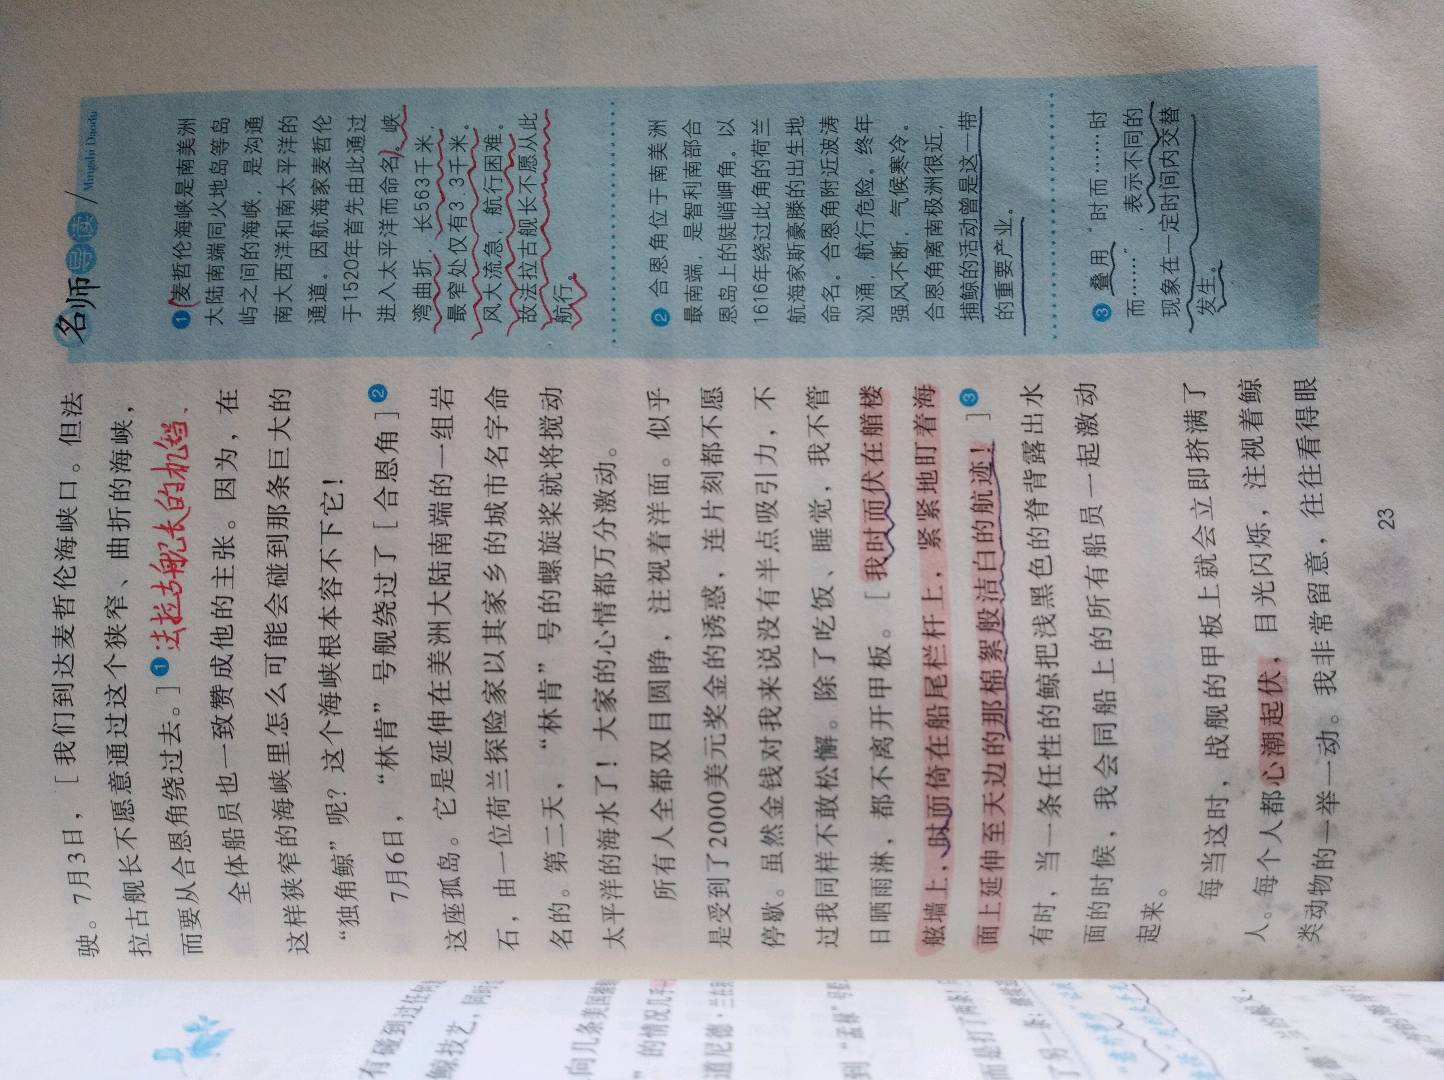 驶。7月3日，［我们到达麦哲伦海峡口。但法
拉古舰长不愿意通过这个狭窄、曲折的海峡，
而要从合恩角绕过去。］❶ 法拉古舰长的机智、
全体船员也一致赞成他的主张。因为，在
这样狭窄的海峡里怎么可能会碰到那条巨大的
“独角鲸”呢？这个海峡根本容不下它！
7月6日，“林肯”号舰绕过了［合恩角］❷
这座孤岛。它是延伸在美洲大陆南端的一组岩
石，由一位荷兰探险家以其家乡的城市名字命
名的。第二天，“林肯”号的螺旋桨就将搅动
太平洋的海水了！大家的心情都万分激动。
所有人全都双目圆睁，注视着洋面。似乎
是受到了2000美元奖金的诱惑，连片刻都不愿
停歇。虽然金钱对我来说没有半点吸引力，不
过我同样不敢松懈。除了吃饭、睡觉，我不管
日晒雨淋，都不离开甲板。［我时而伏在艏楼
舷墙上，时而倚在船尾栏杆上，紧紧地盯着海
面上延伸至天边的那棉絮般洁白的航迹！］❸
有时，当一条任性的鲸把浅黑色的脊背露出水
面的时候，我会同船上的所有船员一起激动
起来。
每当这时，战舰的甲板上就会立即挤满了
人。每个人都心潮起伏，目光闪烁，注视着鲸
类动物的一举一动。我非常留意，往往看得眼
名师导读
Mingshi Daodu
❶ 麦哲伦海峡是南美洲
大陆南端同火地岛等岛
屿之间的海峡，是沟通
南大西洋和南太平洋的
通道。因航海家麦哲伦
于1520年首先由此通过
进入太平洋而命名，峡
湾曲折，长563千米，
最窄处仅有3.3千米。
风大流急，航行困难。
故法拉古舰长不愿从此
航行。
❷ 合恩角位于南美洲
最南端，是智利南部合
恩岛上的陡峭岬角。以
1616年绕过此角的荷兰
航海家斯豪滕的出生地
命名。合恩角附近波涛
汹涌，航行危险。终年
强风不断，气候寒冷。
合恩角离南极洲很近，
捕鲸的活动曾是这一带
的重要产业。
❸ 叠用“时而……时
而……”，表示不同的
现象在一定时间内交替
发生。
23
有碰到过任何
鲸技艺，同时
向几条美国捕鲸
”的情况几乎
道尼德·兰在
到“孟林”号